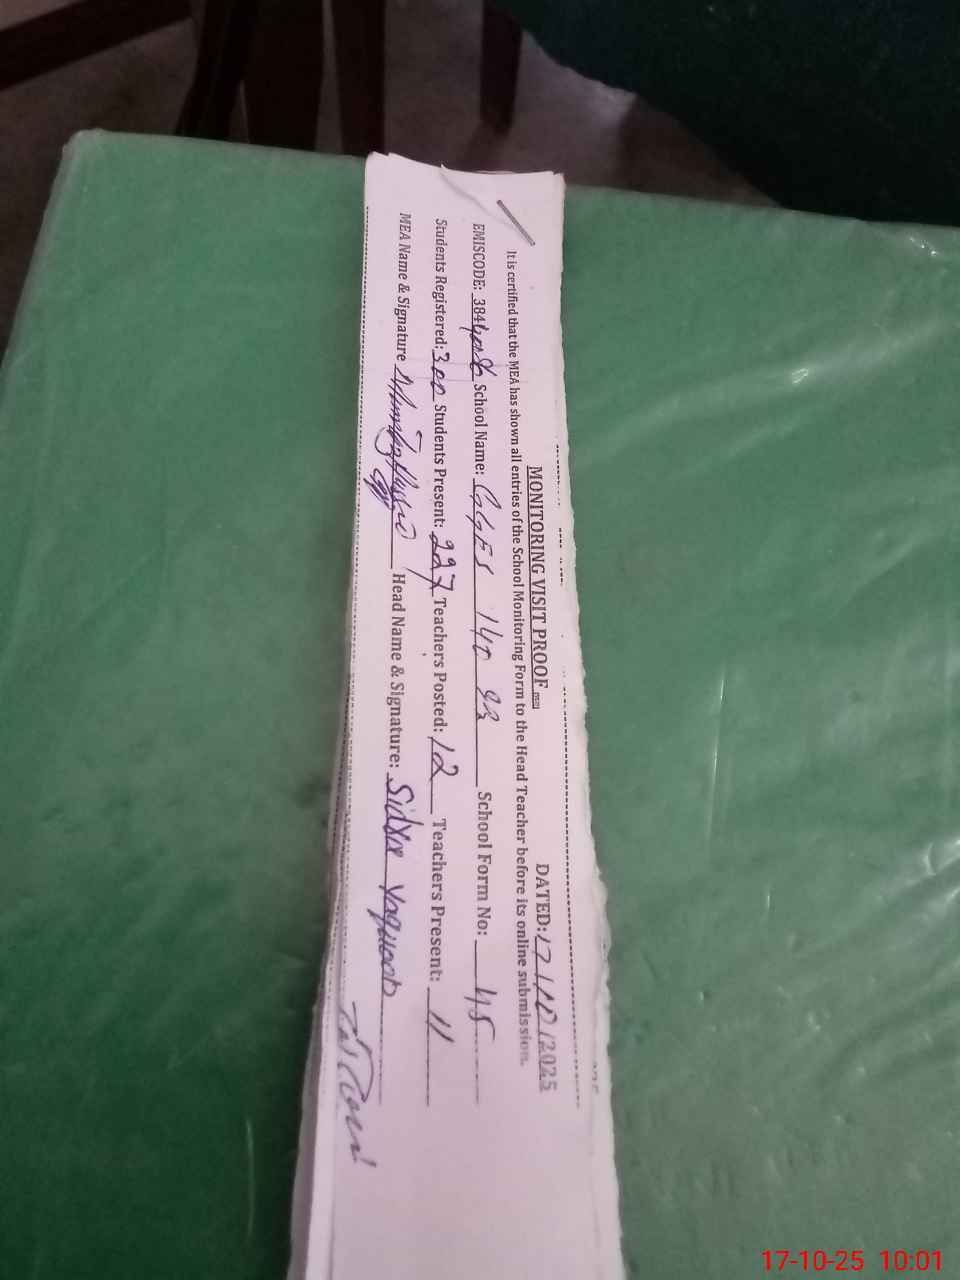 MONITORING VISIT PROOF DATED: 17/10/2025
It is certified that the MEA has shown all entries of the School Monitoring Form to the Head Teacher before its online submission.
EMISCODE: 384 School Name: GGES 140 School Form No: 45
Students Registered: 300 Students Present: 227 Teachers Posted: 12 Teachers Present: 11
MEA Name & Signature Head Name & Signature: Sidra Yaqoob
17-10-25 10:01